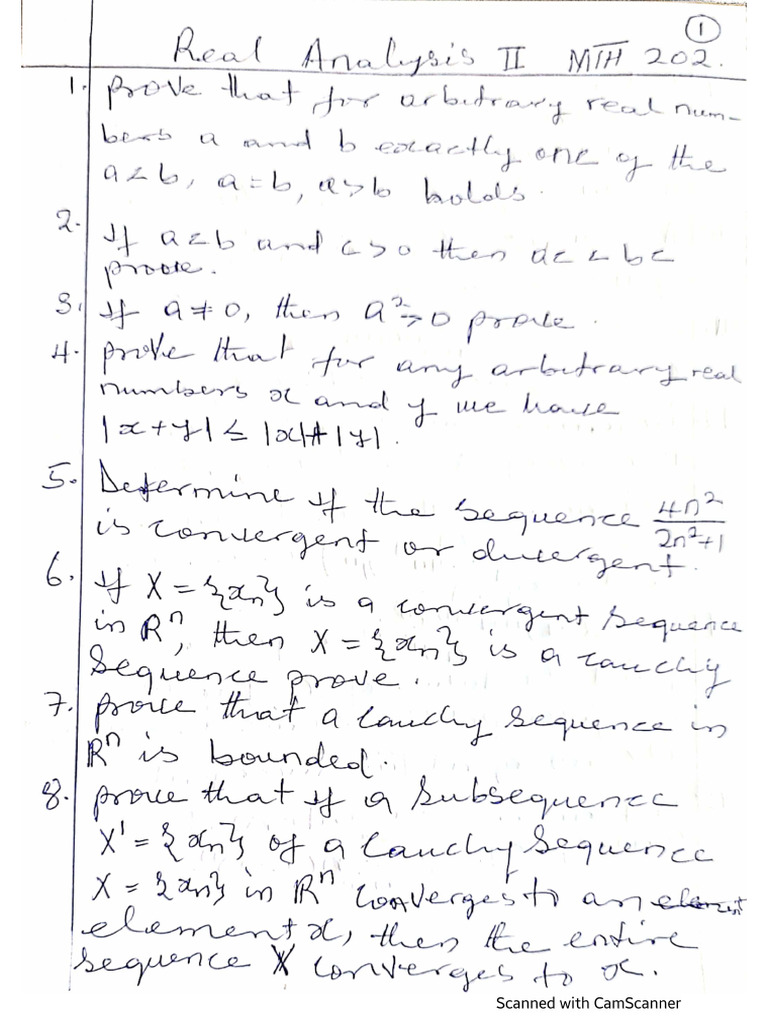 1
Real Analysis II MTH 202.
1. Prove that for arbitrary real num-
bers a and b exactly one of the
a<b, a=b, a>b holds.
2. If a<b and c>0 then ac < bc
prove.
3. If a ≠ 0, then a²>0 prove.
4. Prove that for any arbitrary real
numbers x and y we have
|x+y| ≤ |x|+|y|.
5. Determine if the sequence 4n²/2n²+1
is convergent or divergent.
6. If X = {xn} is a convergent sequence
in Rⁿ, then X = {xn} is a cauchy
sequence prove.
7. prove that a cauchy sequence in
Rⁿ is bounded.
8. prove that if a subsequence
X' = {xn} of a cauchy sequence
X = {xn} in Rⁿ converges to an
element x, then the entire
sequence X converges to x.
Scanned with CamScanner